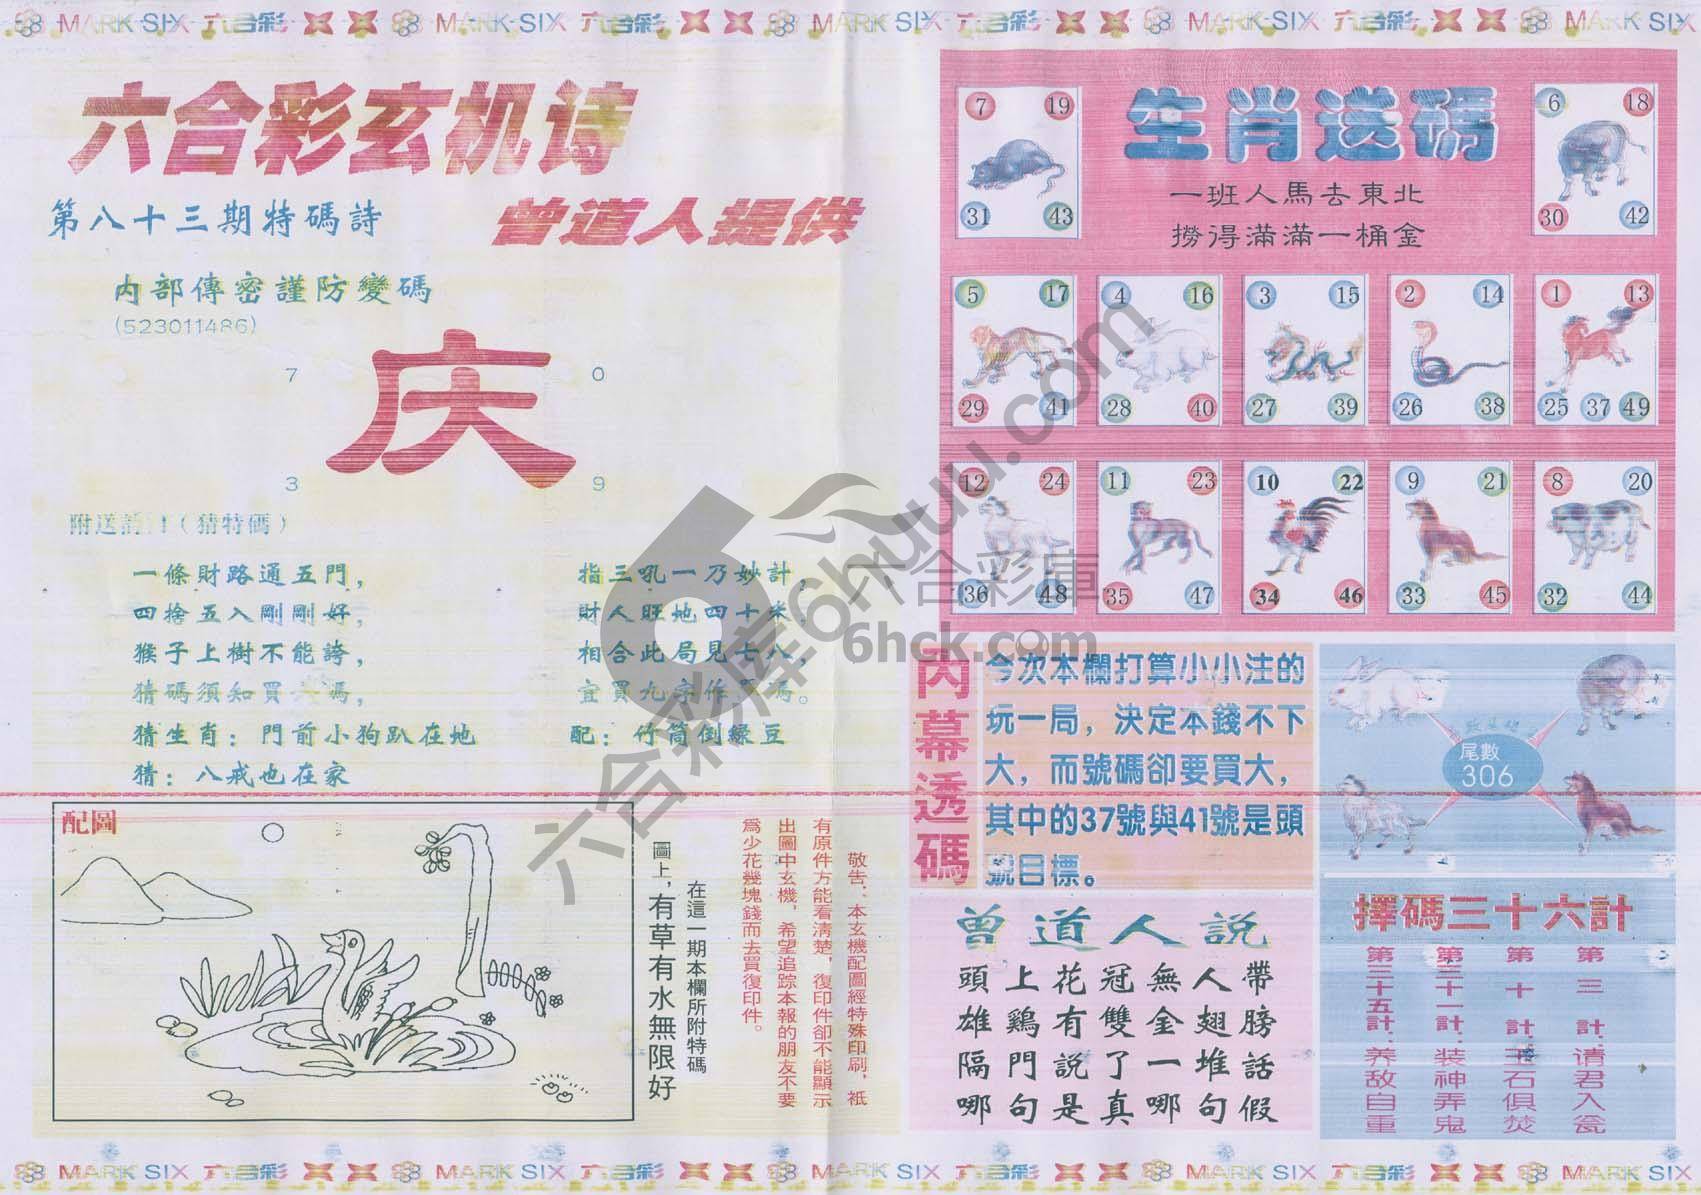 MARK SIX 六合彩 MARK SIX 六合彩 MARK SIX 六合彩 MARK SIX 六合彩 MARK SIX
六合彩玄机诗
第八十三期特碼詩
曾道人提供
内部傳密謹防變碼
(523011486)
7 0
庆
3 9
一條財路通五門，
四捨五入剛剛好，
猴子上樹不能誇，
猜生肖：門前小狗趴在地
猜：八戒也在家
指三吼一乃妙計，
財人旺地四十米，
相合此局見七八，
配：竹筒倒綠豆
配圖
在這一期本欄所附特碼
圖上，有草有水無限好
敬告：本玄機配圖經特殊印刷，祇
有原件方能看清楚，復印件卻不能顯示
出圖中玄機，希望追踪本報的朋友不要
爲少花幾塊錢而去買復印件。
生肖送碼
一班人馬去東北
撈得滿滿一桶金
7 19
31 43
6 18
30 42
5 17
29 41
4 16
28 40
3 15
27 39
2 14
26 38
1 13
25 37 49
12 24
36 48
11 23
35 47
10 22
34 46
9 21
33 45
8 20
32 44
内幕透碼
今次本欄打算小小注的
玩一局，決定本錢不下
大，而號碼卻要買大，
其中的37號與41號是頭
號目標。
尾數
306
曾道人説
頭上花冠無人帶
雄鷄有雙金翅膀
隔門説了一堆話
哪句是真哪句假
擇碼三十六計
第三計：请君入瓮
第十計：玉石俱焚
第三十一計：装神弄鬼
第三十五計：养敌自重
六合彩库6huuu.com
六合彩庫
6hck.com
MARK SIX 六合彩 MARK SIX 六合彩 MARK SIX 六合彩 MARK SIX 六合彩 MARK SIX